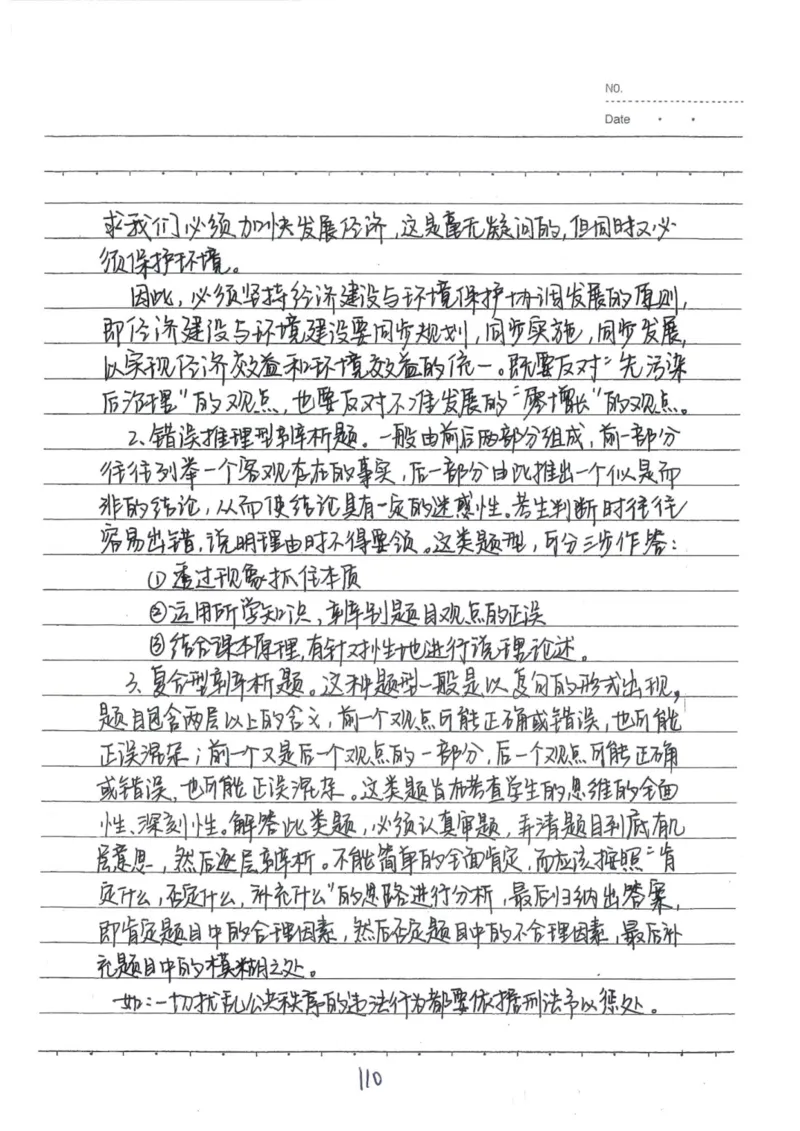 NO.
Date · ·
求我们必须加快发展经济,这是毫无疑问的,但同时又必
须保护环境。
因此,必须坚持经济建设与环境保护协调发展的原则,
即经济建设与环境建设要同步规划,同步实施,同步发展,
以实现经济效益和环境效益的统一。既要反对“先污染
后治理”的观点,也要反对不准发展的“零增长”的观点。
2、错误推理型辨析题。一般由前后两部分组成,前一部分
往往列举一个客观存在的事实,后一部分由此推出一个似是而
非的结论,从而使结论具有一定的迷惑性。考生判断时往往
容易出错,说明理由时不得要领。这类题型,可分三步作答:
①透过现象抓住本质
②运用所学知识,辨别题目观点的正误
③结合课本原理,有针对性地进行说理论述。
3、复合型辨析题。这种题型一般是以复句的形式出现,
题目包含两层以上的含义,前一个观点可能正确或错误,也可能
正误混杂;前一个又是后一个观点的一部分,后一个观点可能正确
或错误,也可能正误混杂。这类题旨在考查学生的思维的全面
性、深刻性。解答此类题,必须认真审题,弄清题目到底有几
层意思,然后逐层辨析。不能简单的全面肯定,而应该按照“肯
定什么,否定什么,补充什么”的思路进行分析,最后归纳出答案,
即肯定题目中的合理因素,然后否定题目中的不合理因素,最后补
充题目中的模糊之处。
如:一切扰乱公共秩序的违法行为都要依据刑法予以惩处。
110